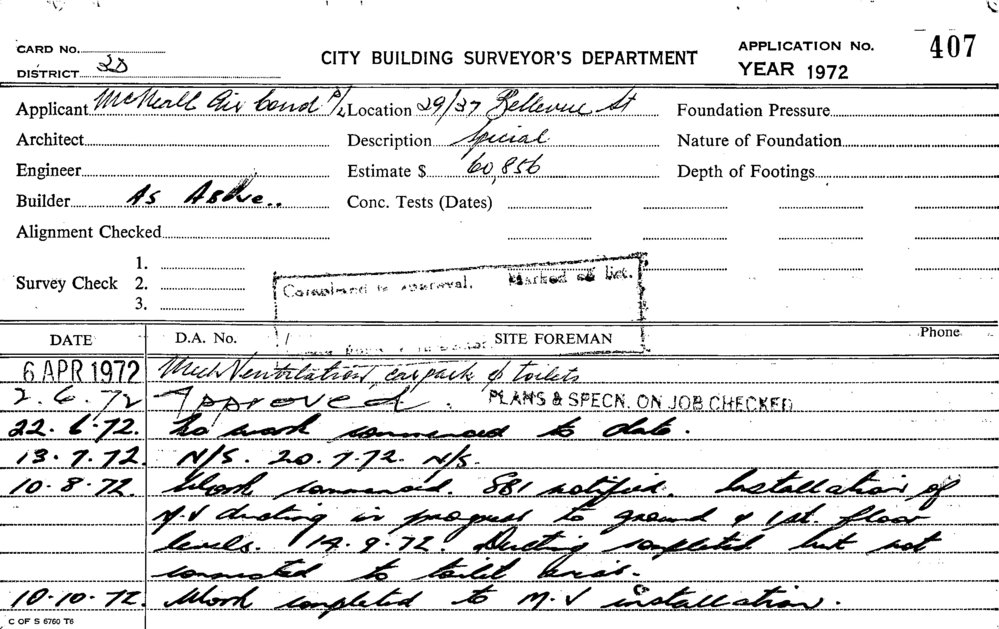 CARD No.
DISTRICT 2D
CITY BUILDING SURVEYOR'S DEPARTMENT
APPLICATION No. 407
YEAR 1972
Applicant McNeall Air Cond P/L Location 29/37 Bellevue St Foundation Pressure
Architect Description Special Nature of Foundation
Engineer Estimate $ 60,856 Depth of Footings
Builder As Above.. Conc. Tests (Dates)
Alignment Checked
Survey Check 1.
2.
3.
Completed to approval. Marked off list.
DATE D.A. No. / SITE FOREMAN Phone
6 APR 1972 Mech Ventilation, carpark & toilets
2.6.72 Approved. PLANS & SPECN. ON JOB CHECKED
22.6.72. No work commenced to date.
13.7.72. N/S. 20.7.72. N/S.
10.8.72. Work commenced. SB1 notified. Installation of
M.V ducting in progress to ground & 1st. floor
levels. 14.9.72. Ducting completed but not
connected to toilet areas.
10.10.72. Work completed to M.V installation.
C OF S 6760 T6